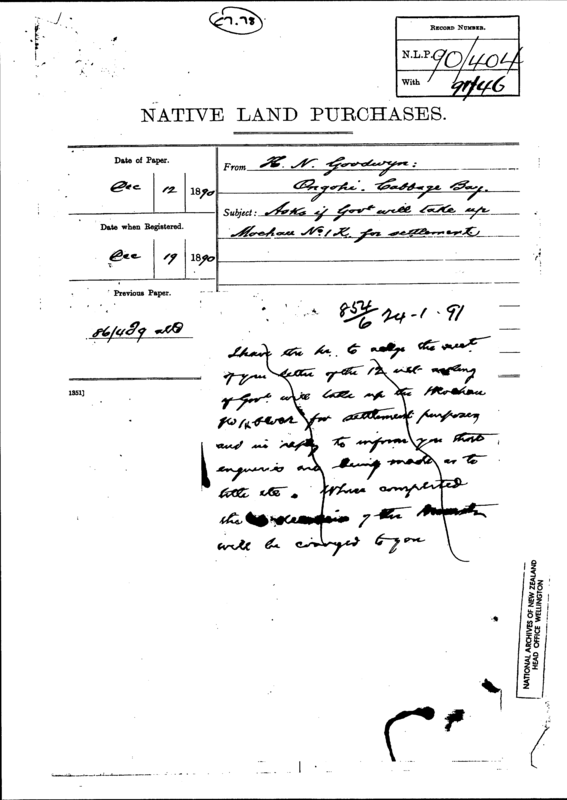 C7.78
RECORD NUMBER.
N.L.P. 90/404
With 91/46
NATIVE LAND PURCHASES.
Date of Paper.
Dec 12 1890
Date when Registered.
Dec 19 1890
Previous Paper.
86/489 attd
1351]
From H. N. Goodwyn:
Ongohi. Cabbage Bay.
Subject: Asks if Govt will take up
Moehau No 1 K. for settlement
854/6 24-1-91
I have the hr. to acknge the rect
of your letter of the 12 inst asking
if Govt will take up the Moehau
for settlement purposes
and in reply to inform you that
enquiries are being made as to
title etc. When completed
the of the
will be conveyed to you
NATIONAL ARCHIVES OF NEW ZEALAND
HEAD OFFICE WELLINGTON